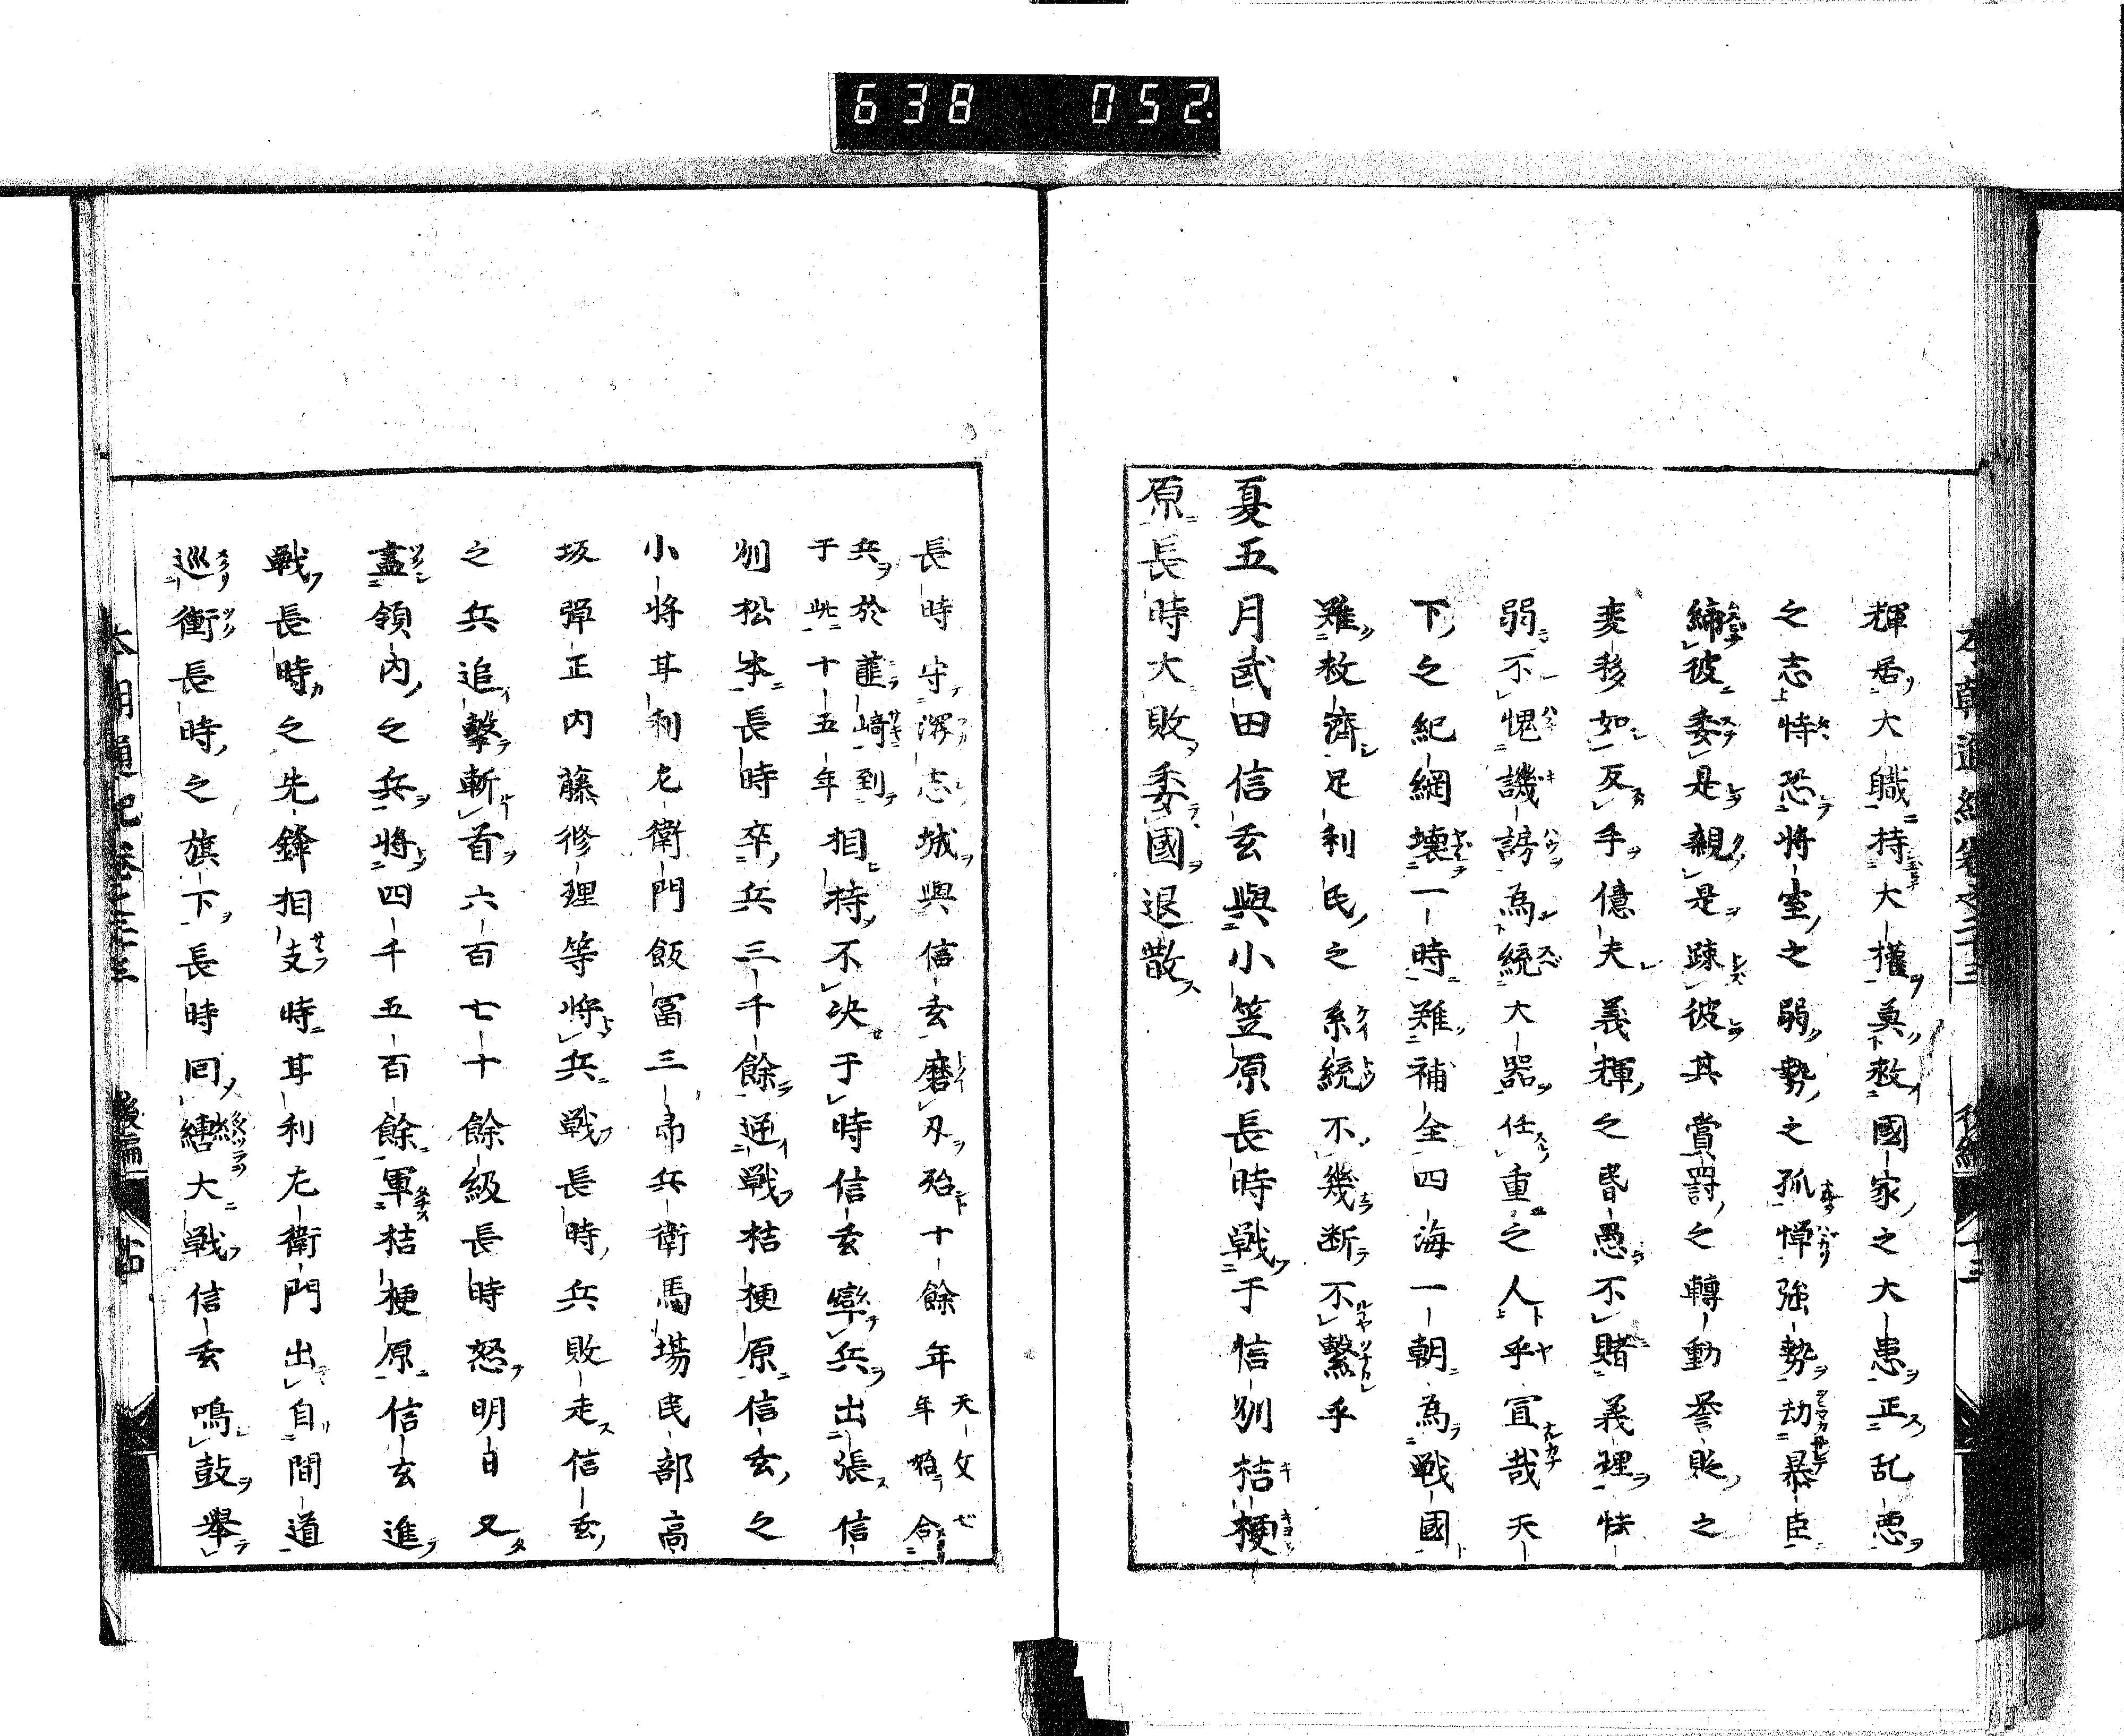 638 052.
本朝通紀卷之二十三 後編 十三
輝居大職持大權莫救國家之大患正乱悪
之志恃恐將室之弱勢之孤憚強勢劫暴臣
締彼委是親是疎彼其賞罸之轉動誉貶之
変移如反手億夫義輝之昏愚不賭義理怯
弱不愧譏謗為統大器任重之人乎宜哉天
下之紀網壊一時難補全四海一朝為戦國
難救濟足利氏之系統不幾断不繫乎
夏五月武田信玄與小笠原長時戦于信刕桔梗
原長時大敗委國退散
長時守深志城與信玄磨刄殆十餘年
天文七
年始合
兵於韮﨑到
于此十五年
相持不决于時信玄率兵出張信
刕松本長時卒兵三千餘逆戦桔梗原信玄之
小將耳利尤衛門飯冨三帍兵衛馬場民部高
坂彈正内藤修理等將兵戦長時兵敗走信玄
之兵追擊斬首六百七十餘級長時怒明日又
盡領内之兵將四千五百餘軍桔梗原信玄進
戦長時之先鋒相支時耳利尤衛門出自間道
巡衝長時之旗下長時回轡大戦信玄鳴鼓舉
本朝通紀卷之二十三 後編 十四